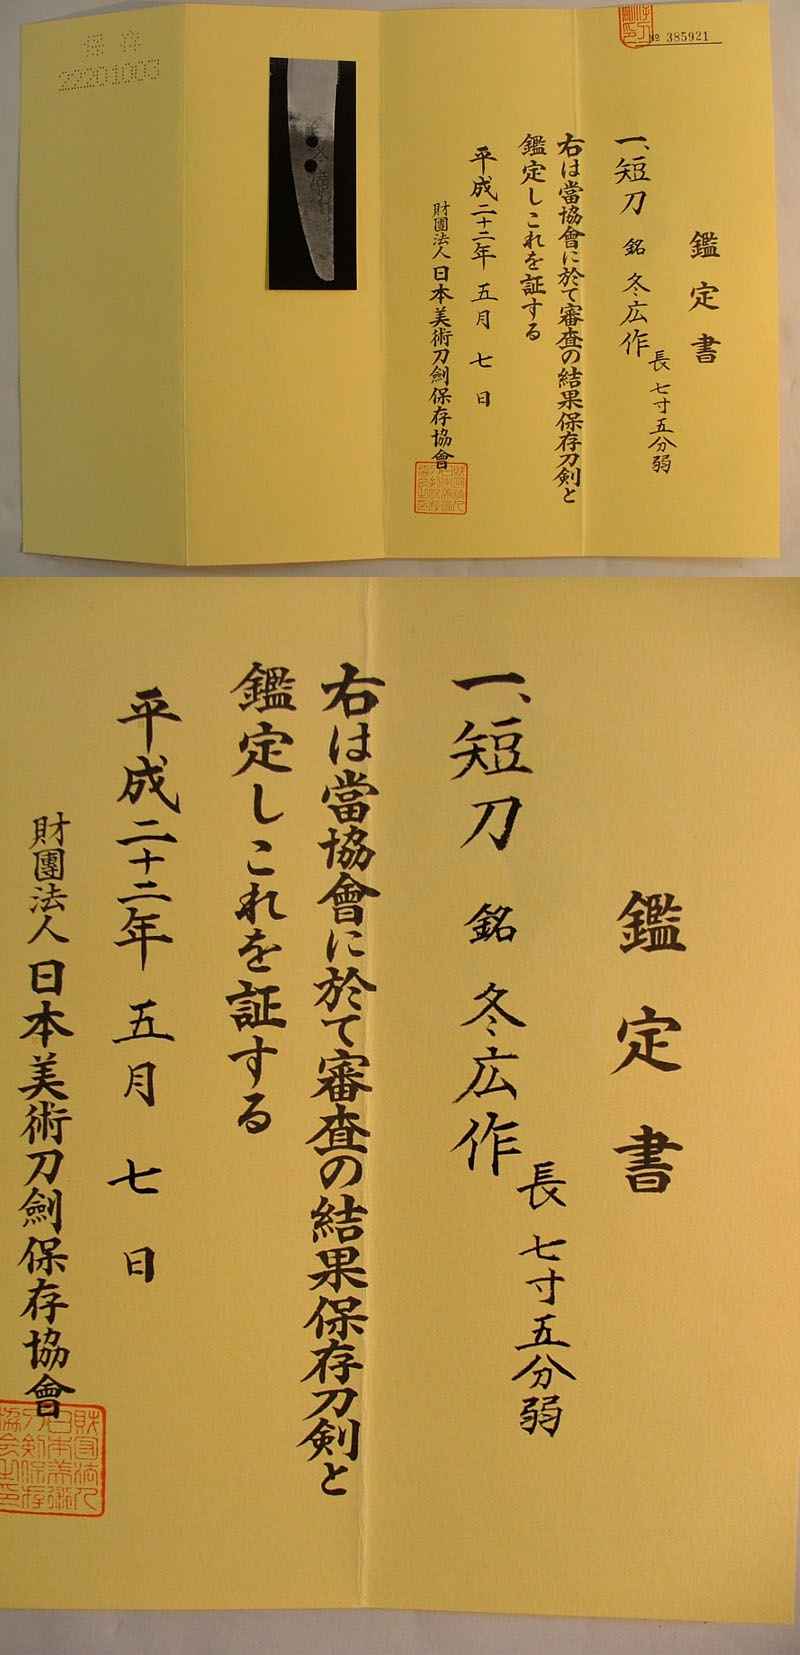 № 385921
鑑定書
一、短刀 銘 冬広作
長 七寸五分弱
右は當協會に於て審査の結果保存刀剣と
鑑定しこれを証する
平成二十二年 五月 七 日
財團法人日本美術刀劍保存協會
保存
22201003
鑑定書
一、短刀 銘 冬広作
長 七寸五分弱
右は當協會に於て審査の結果保存刀剣と
鑑定しこれを証する
平成二十二年 五月 七 日
財團法人日本美術刀劍保存協會